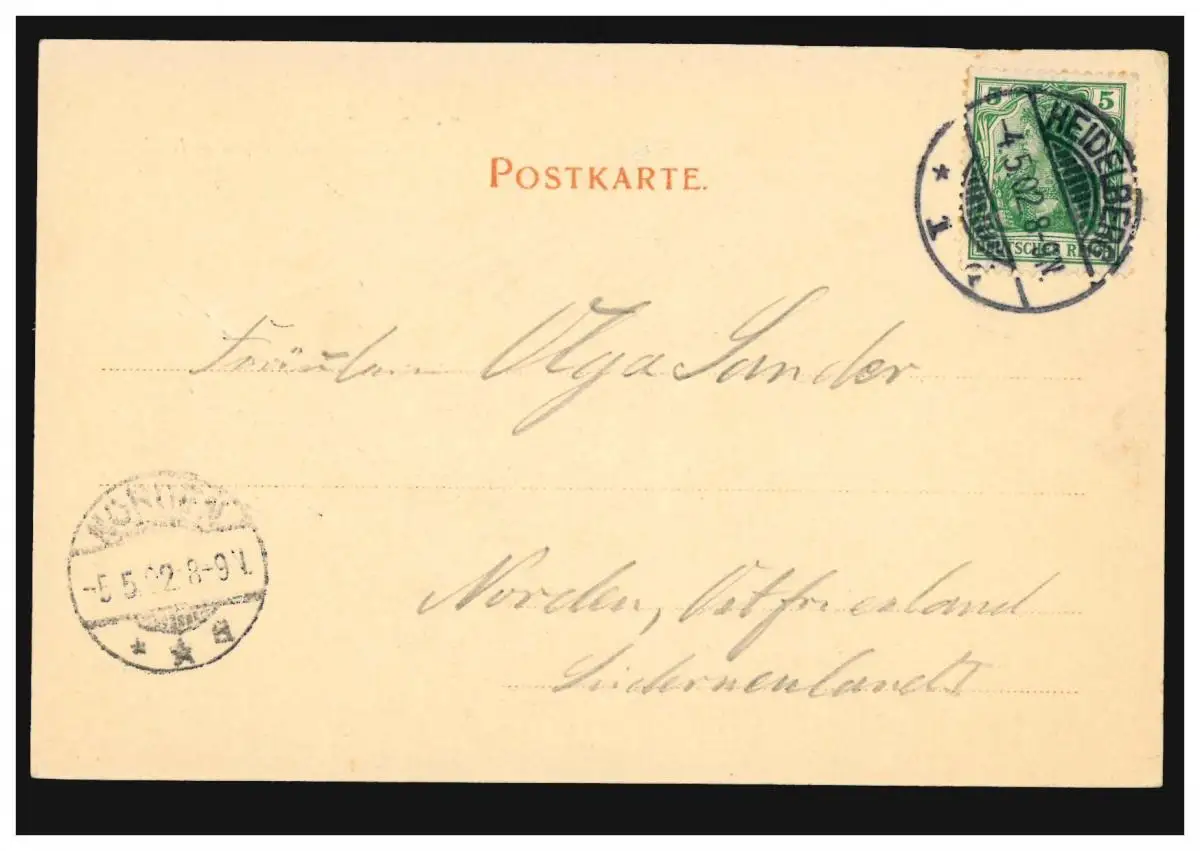 POSTKARTE.
5 5
DEUTSCHES REICH
HEIDELBERG
-4.5.02.8-9N.
* 1
Fräulein Olga Sander
NORDEN
-5.5.02.8-9V.
* * *
Norden, Ostfriesland